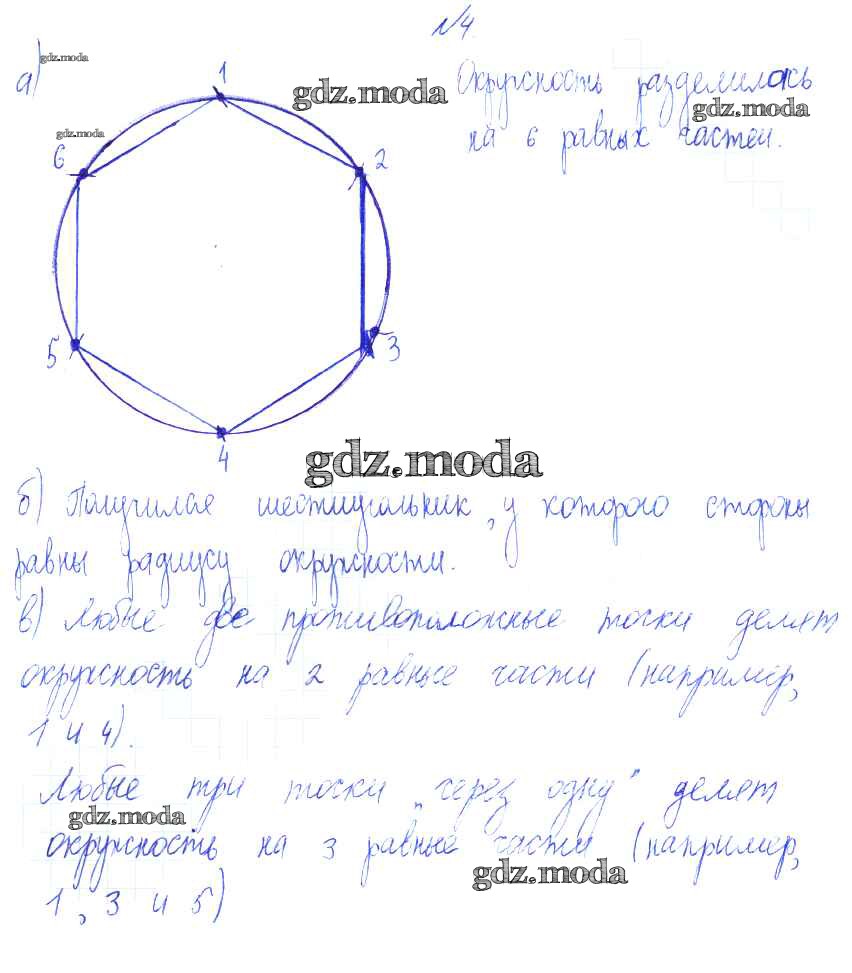 №4.
а)
gdz.moda
1
gdz.moda
Окружность разделилась
gdz.moda
на 6 равных частей.
gdz.moda
6
2
5
3
4
gdz.moda
б) Получился шестиугольник, у которого стороны
равны радиусу окружности.
в) Любые две противоположные точки делят
окружность на 2 равные части (например,
1 и 4).
Любые три точки "через одну" делят
gdz.moda
окружность на 3 равные части (например,
gdz.moda
1, 3 и 5)